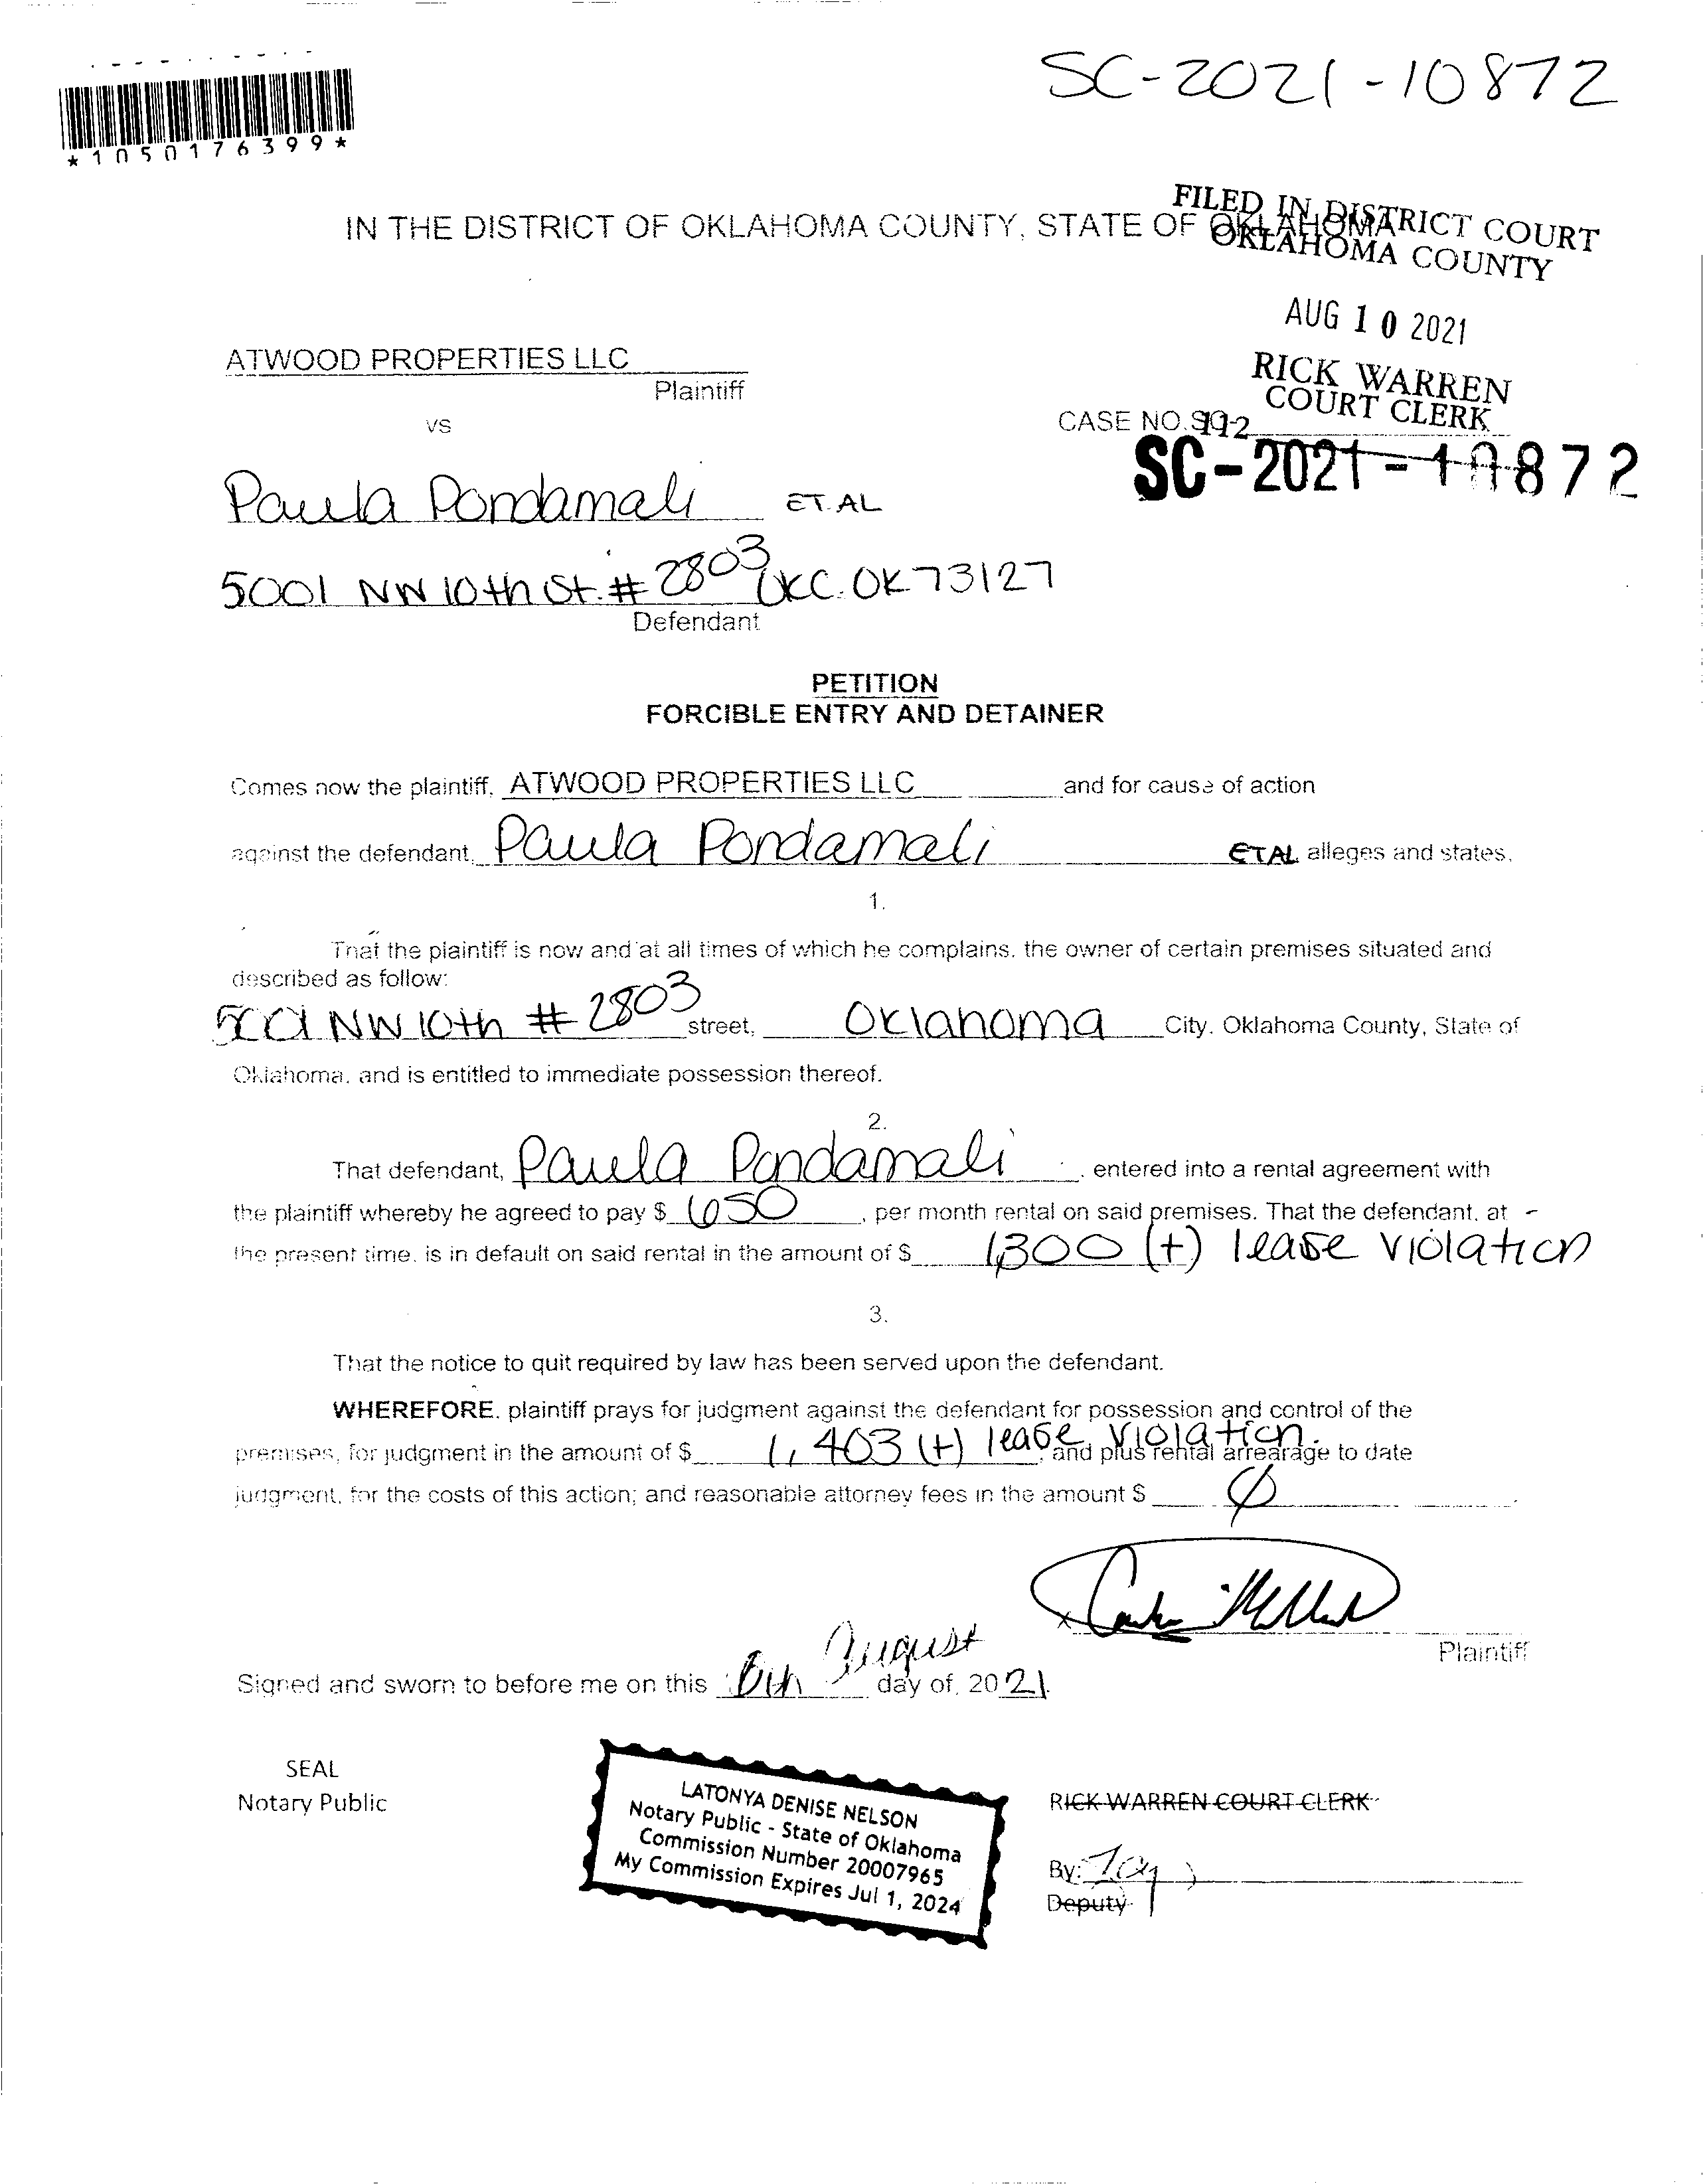 SC-2021-10872
*1050176399*
FILED IN DISTRICT COURT
OKLAHOMA COUNTY
IN THE DISTRICT OF OKLAHOMA COUNTY, STATE OF OKLAHOMA
AUG 10 2021
RICK WARREN
COURT CLERK
ATWOOD PROPERTIES LLC
Plaintiff
vs
CASE NO.
SC-2021-10872
Paula Pondamali ET. AL
5001 NW 10th St. # 2803 OKC. OK 73127
Defendant
PETITION
FORCIBLE ENTRY AND DETAINER
Comes now the plaintiff, ATWOOD PROPERTIES LLC and for cause of action
against the defendant, Paula Pondamali ETAL alleges and states,
1.
That the plaintiff is now and at all times of which he complains, the owner of certain premises situated and
described as follow:
5001 NW 10th # 2803 street, Oklahoma City, Oklahoma County, State of
Oklahoma, and is entitled to immediate possession thereof.
2.
That defendant, Paula Pondamali, entered into a rental agreement with
the plaintiff whereby he agreed to pay $ 650, per month rental on said premises. That the defendant, at
the present time, is in default on said rental in the amount of $ 1,300 (+) lease violation
3.
That the notice to quit required by law has been served upon the defendant.
WHEREFORE, plaintiff prays for judgment against the defendant for possession and control of the
premises, for judgment in the amount of $ 1,403 (+) lease violation. and plus rental arrearage to date
judgment, for the costs of this action; and reasonable attorney fees in the amount $ Ø
Plaintiff
Signed and sworn to before me on this August day of, 2021.
SEAL
Notary Public
LATONYA DENISE NELSON
Notary Public - State of Oklahoma
Commission Number 20007965
My Commission Expires Jul 1, 2024
RICK WARREN COURT CLERK
By:
Deputy